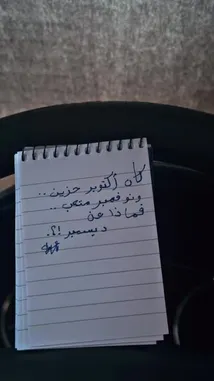 كان أكتوبر حزين..
ونوفمبر متعب..
فماذا عن
ديسمبر!؟.